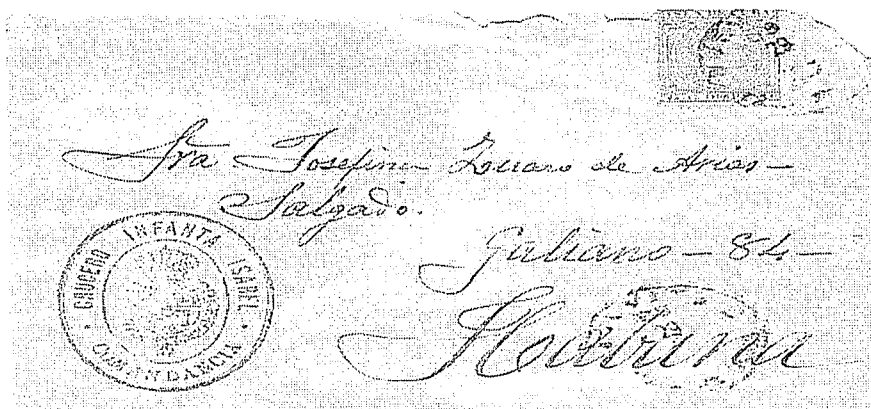 Sra Josefina Zuazo de Arias-
Salgado.
Galiano - 84 -
Habana
CRUCERO INFANTA ISABEL
COMANDANCIA